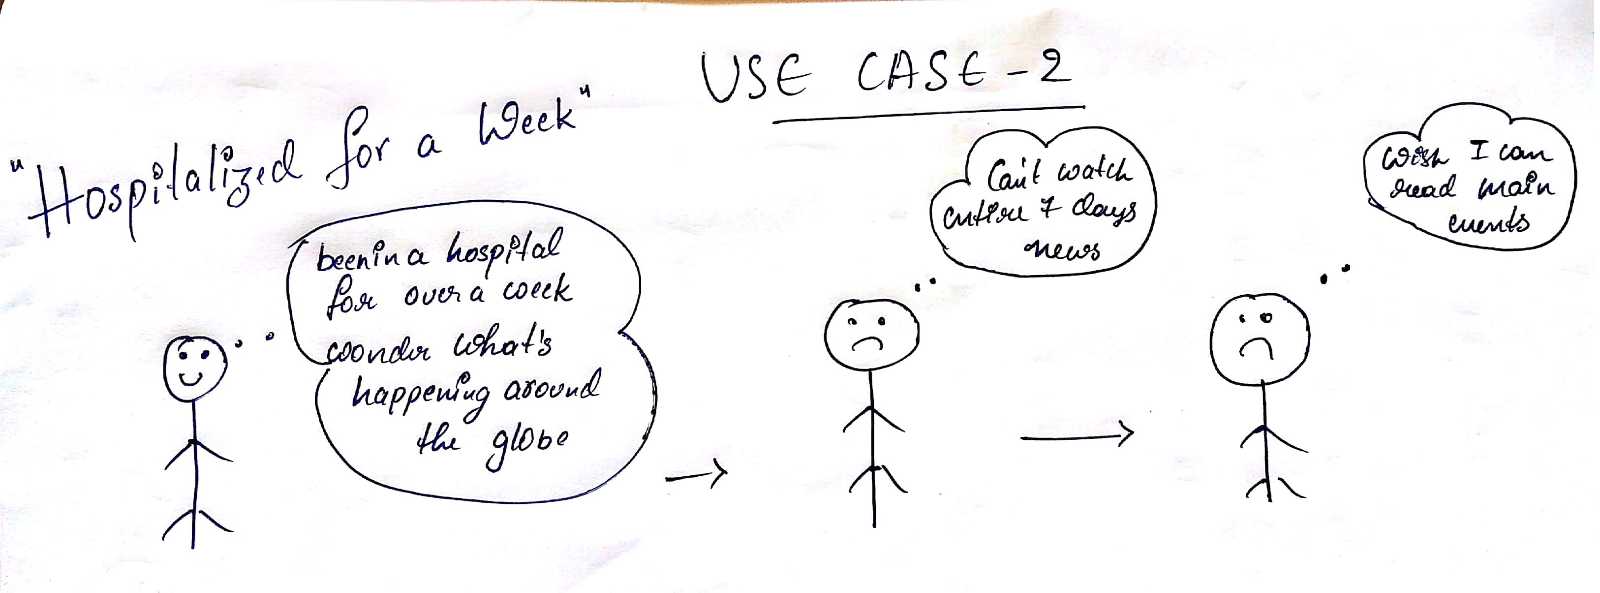 USE CASE - 2
"Hospitalized for a Week"
been in a hospital
for over a week
wonder what's
happening around
the globe
Can't watch
entire 7 days
news
Wish I can
read main
events